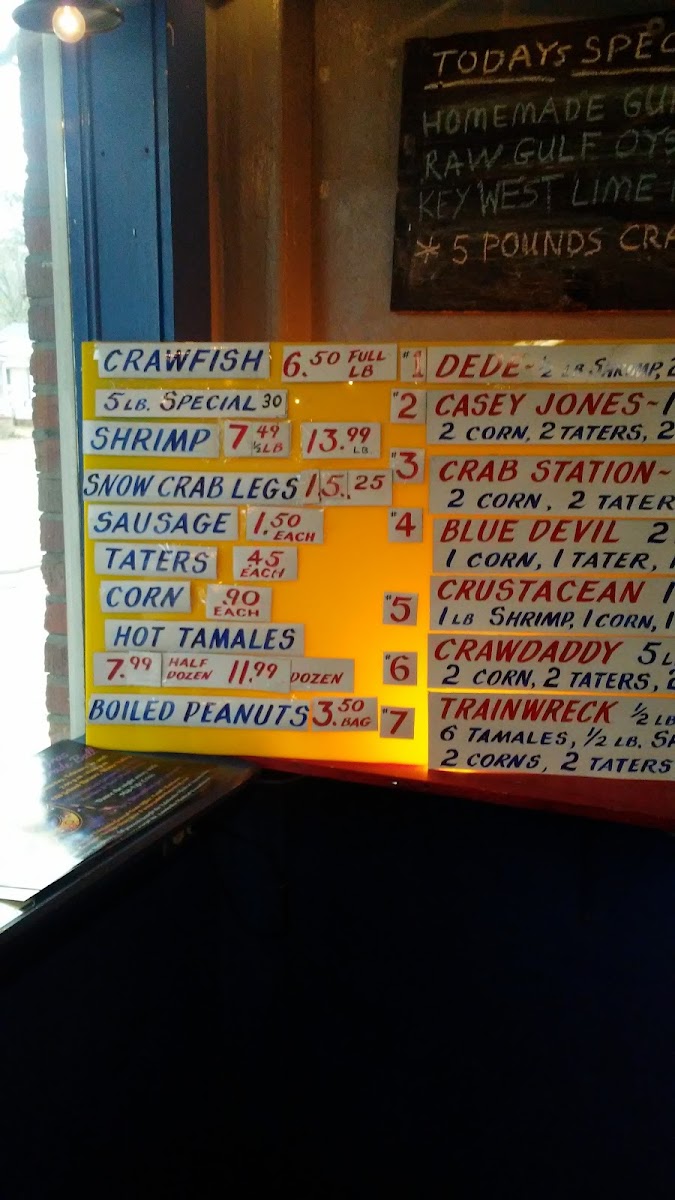 TODAYS SPEC
HOMEMADE GU
RAW GULF OYS
KEY WEST LIME
* 5 POUNDS CRA
CRAWFISH 6.50 FULL LB
5 LB. SPECIAL 30
SHRIMP 7.49 ½ LB 13.99 LB
SNOW CRAB LEGS 15.25
SAUSAGE 1.50 EACH
TATERS .45 EACH
CORN .90 EACH
HOT TAMALES
7.99 HALF DOZEN 11.99 DOZEN
BOILED PEANUTS 3.50 BAG
#1 DEDE~ ½ LB. SHRIMP, 2
#2 CASEY JONES~ 1
2 CORN, 2 TATERS, 2
#3 CRAB STATION~
2 CORN, 2 TATER
#4 BLUE DEVIL 2
1 CORN, 1 TATER, 1
#5 CRUSTACEAN 1
1 LB SHRIMP, 1 CORN, 1
#6 CRAWDADDY 5 L
2 CORN, 2 TATERS, 2
#7 TRAINWRECK ½ LB
6 TAMALES, ½ LB. SA
2 CORNS, 2 TATERS